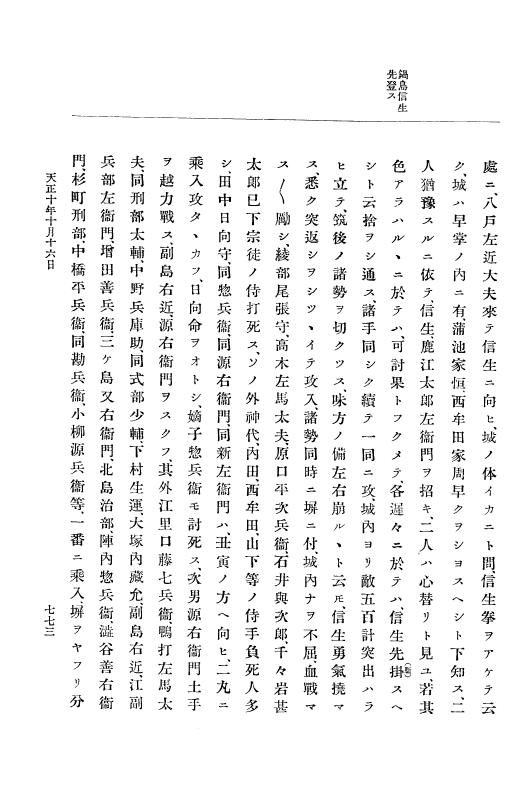 鍋島信生
先登ス
處ニ、八戸左近大夫來テ信生ニ向ヒ、城ノ体イカニト問、信生拳ヲアケテ云
ク、城ハ早掌ノ内ニ有、蒲池家恒、西牟田家周早クヲシヨスヘシト下知ス、二
人猶豫スルニ依テ、信生、鹿江太郎左衞門ヲ招キ、二人ハ心替リト見ユ、若其
色アラハルヽニ於テハ、可討果トフクメテ、各遲々ニ於テハ、信生先掛スヘ
シト云捨ヲシ通ス、諸手同シク續テ一同ニ攻、城内ヨリ敵五百計突出ハラ
ヒ立テ、筑後ノ諸勢ヲ切クツス、味方ノ備左右崩ルヽト云ﾄﾓ、信生勇氣撓マ
ス、悉ク突返シヲシツヽイテ攻入、諸勢同時ニ塀ニ付、城内ナヲ不屈、血戰マ
ス〳〵勵シ、綾部尾張守、高木左馬太夫、原口平次兵衞、石井與次郎、千々岩甚
太郎已下宗徒ノ侍打死ス、ソノ外神代、内田、西牟田、山下等ノ侍手負死人多
シ、田中日向守、同惣兵衞、同源右衞門、同新左衞門ハ、丑寅ノ方ヘ向ヒ、二丸ニ
乘入攻タヽカフ、日向命ヲオトシ、嫡子惣兵衞モ討死ス、次男源右衞門土手
ヲ越力戰ス、副島右近、源右衞門ヲスクフ、其外江里口藤七兵衞、鴨打左馬太
夫、同刑部太輔、中野兵庫助、同式部少輔、下村生運、大塚内藏允、副島右近、江副
兵部左衞門、増田善兵衞、三ケ島又右衞門、北島治部、陣内惣兵衞、澁谷善右衞
門、杉町刑部、中橋平兵衞、同勘兵衞、小柳源兵衞等、一番ニ乘入塀ヲヤフリ分
天正十年十月十六日
七七三